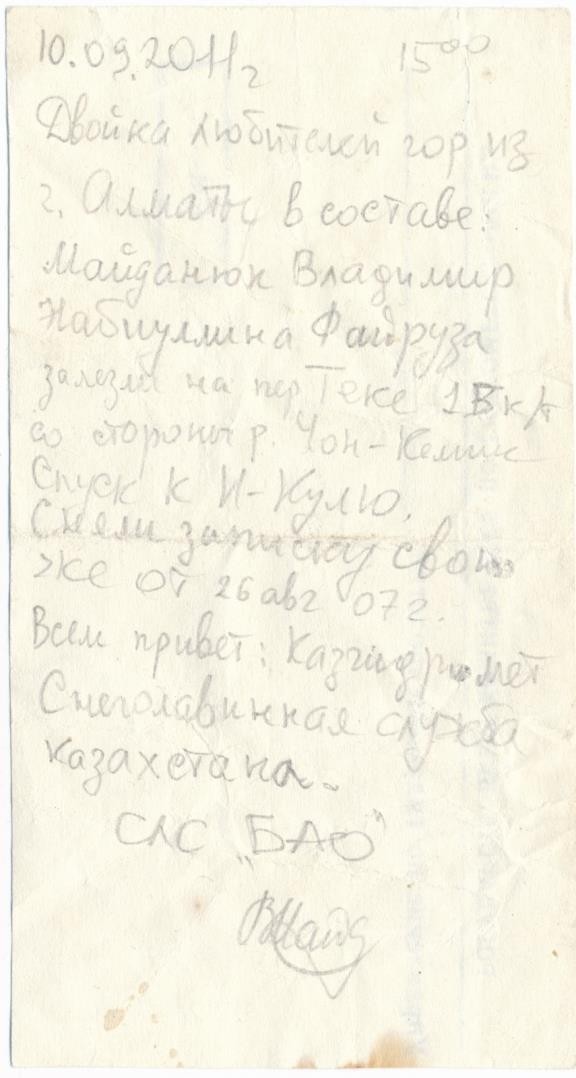 10.09.2011г 15⁰⁰
Двойка любителей гор из
г. Алматы в составе:
Майданюк Владимир
Набиуллина Файруза
залезли на пер Теке 1Б к/т
со стороны р. Чон-Кемин
Спуск к И-Кулю.
Сняли записку свою
же от 26 авг 07 г.
Всем привет: Казгидромет
Снеголавинная служба
казахстана.
СЛС „БАО"
ВМайд